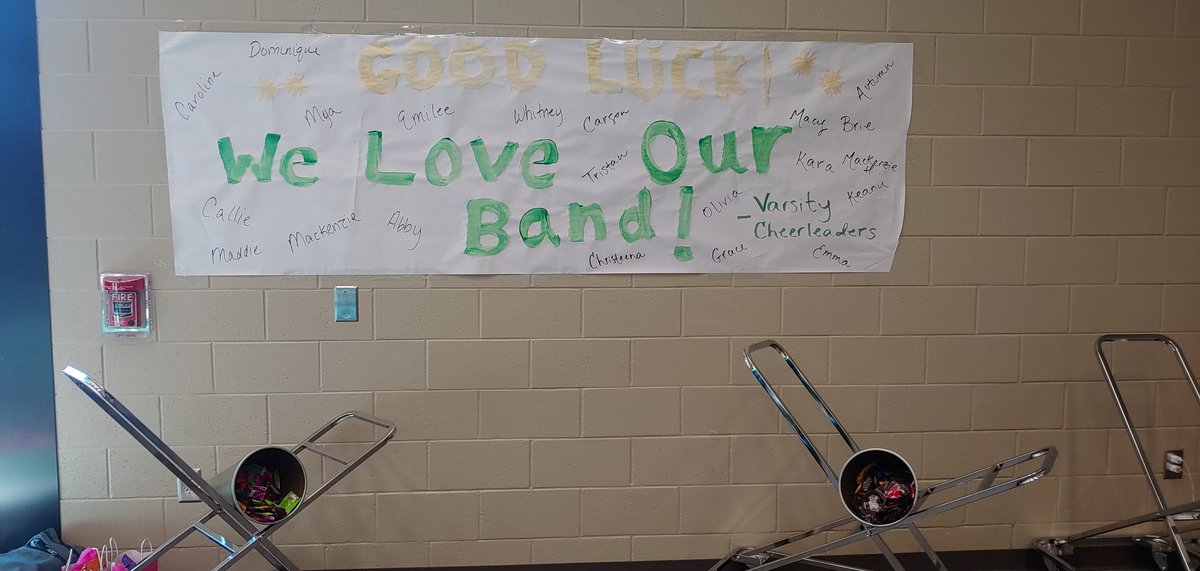 Dominique
GOOD LUCK!
Autumn
Caroline
Mya
Emilee
Whitney
Carson
Macy
Brie
We Love Our
Tristan
Kara
Mackenzie
Keanu
Callie
Mackenzie
Abby
Band!
Olivia
- Varsity
Cheerleaders
Maddie
Christeena
Grace
Emma
FIRE